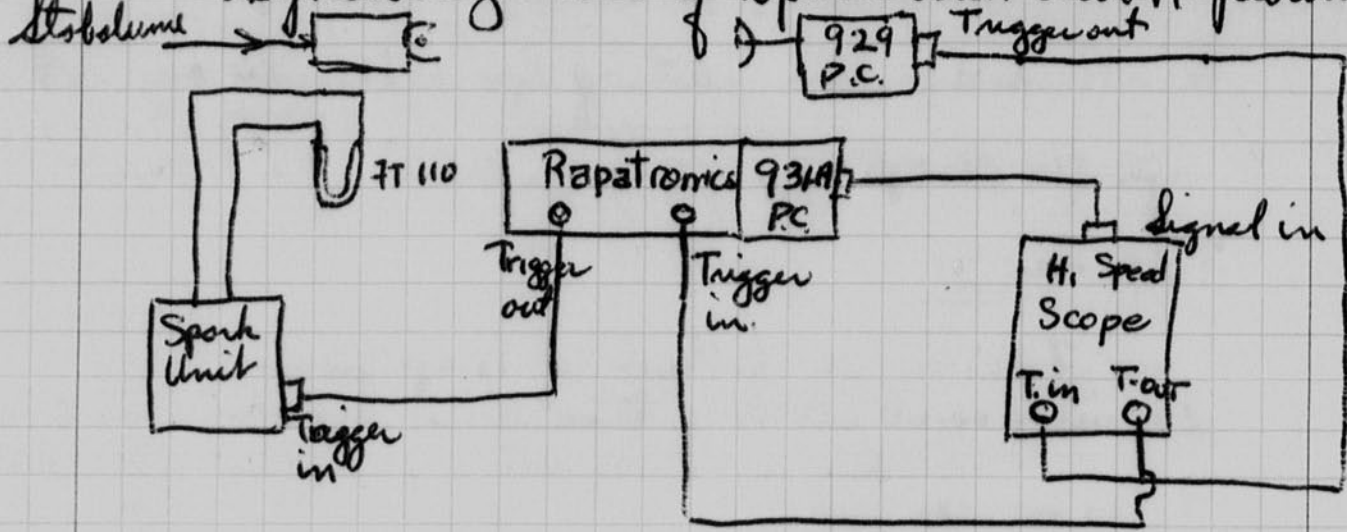 Stobolume
929
P.C.
Trigger out
FT 110
Rapatronics
931A
P.C.
Trigger
out
Trigger
in.
Signal in
Hi Speed
Scope
T. in T-out
Spark
Unit
Trigger
in